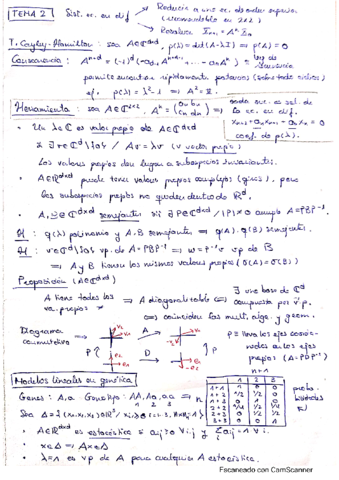 TEMA 2 Sist. ec. en dif
Reducir a una ec. de orden superior
(recomendable en 2x2)
Resolver X_{n+1} = A^n X_0
T. Cayley-Hamilton: sea A∈ℂ^{dxd}, p(λ)=det(A-λI) ⟹ p(A)=0
Consecuencia: A^{n+d} = (-1)^d (-a_{d-1} A^{n+d-1} - ... - a_0 A^n) ley de recurrencia
permite encontrar rápidamente potencias (sobre todo ciclos)
ej. p(λ)=λ²-1 ⟹ A²=I.
Herramienta: sea A∈ℂ^{2x2}, A^n = (a_n b_n / c_n d_n) ⟹ cada suc. es sol. de
la ec. en dif.
coef. de p(λ).
• Un λ∈ℂ es valor propio de A∈ℂ^{dxd}
si ∃ v∈ℂ^d\{0} / Av=λv (v vector propio)
Los valores propios dan lugar a subespacios invariantes.
• A∈ℝ^{dxd} puede tener valores propios complejos (giros), pero
los subespacios propios no quedan dentro de ℝ^d.
• A, B∈ℂ^{dxd} semejantes si ∃ P∈ℂ^{dxd} / |P|≠0 cumple A=PBP^{-1}
q(λ) polinomio y A, B semejantes ⟹ q(A), q(B) semejantes.
v∈ℂ^d\{0} vp. de A=PBP^{-1} ⟹ w=P^{-1}v vp de B
⟹ A y B tienen los mismos valores propios (σ(A)=σ(B))
Proposición (A∈ℂ^{dxd})
A tiene todos los va. propios ≠ ⟹ A diagonalizable ⟺ ∃ una base de ℂ^d compuesta por v. p.
⟺ coinciden las mult. alge. y geom.
Diagrama conmutativo
A
P
D
P
P lleva los ejes coordenados a los ejes
propios (A=PDP^{-1})
Modelos lineales en genética
n+1
Genes: A, a Genotipo: AA, Aa, aa
1 2 3
n
1 2 3
1+1 1 0 0
1+2 1/2 1/2 0
1+3 0 1 0
2+2 1/4 1/2 1/4
2+3 0 1/2 1/2
3+3 0 0 1
• A∈ℝ^{dxd} es estocástica si a_{ij}≥0 ∀i,j y Σa_{ij}=1 ∀i.
• x∈Δ ⟹ Ax∈Δ
• λ=1 es vp de A para cualquier A estocástica.
Escaneado con CamScanner